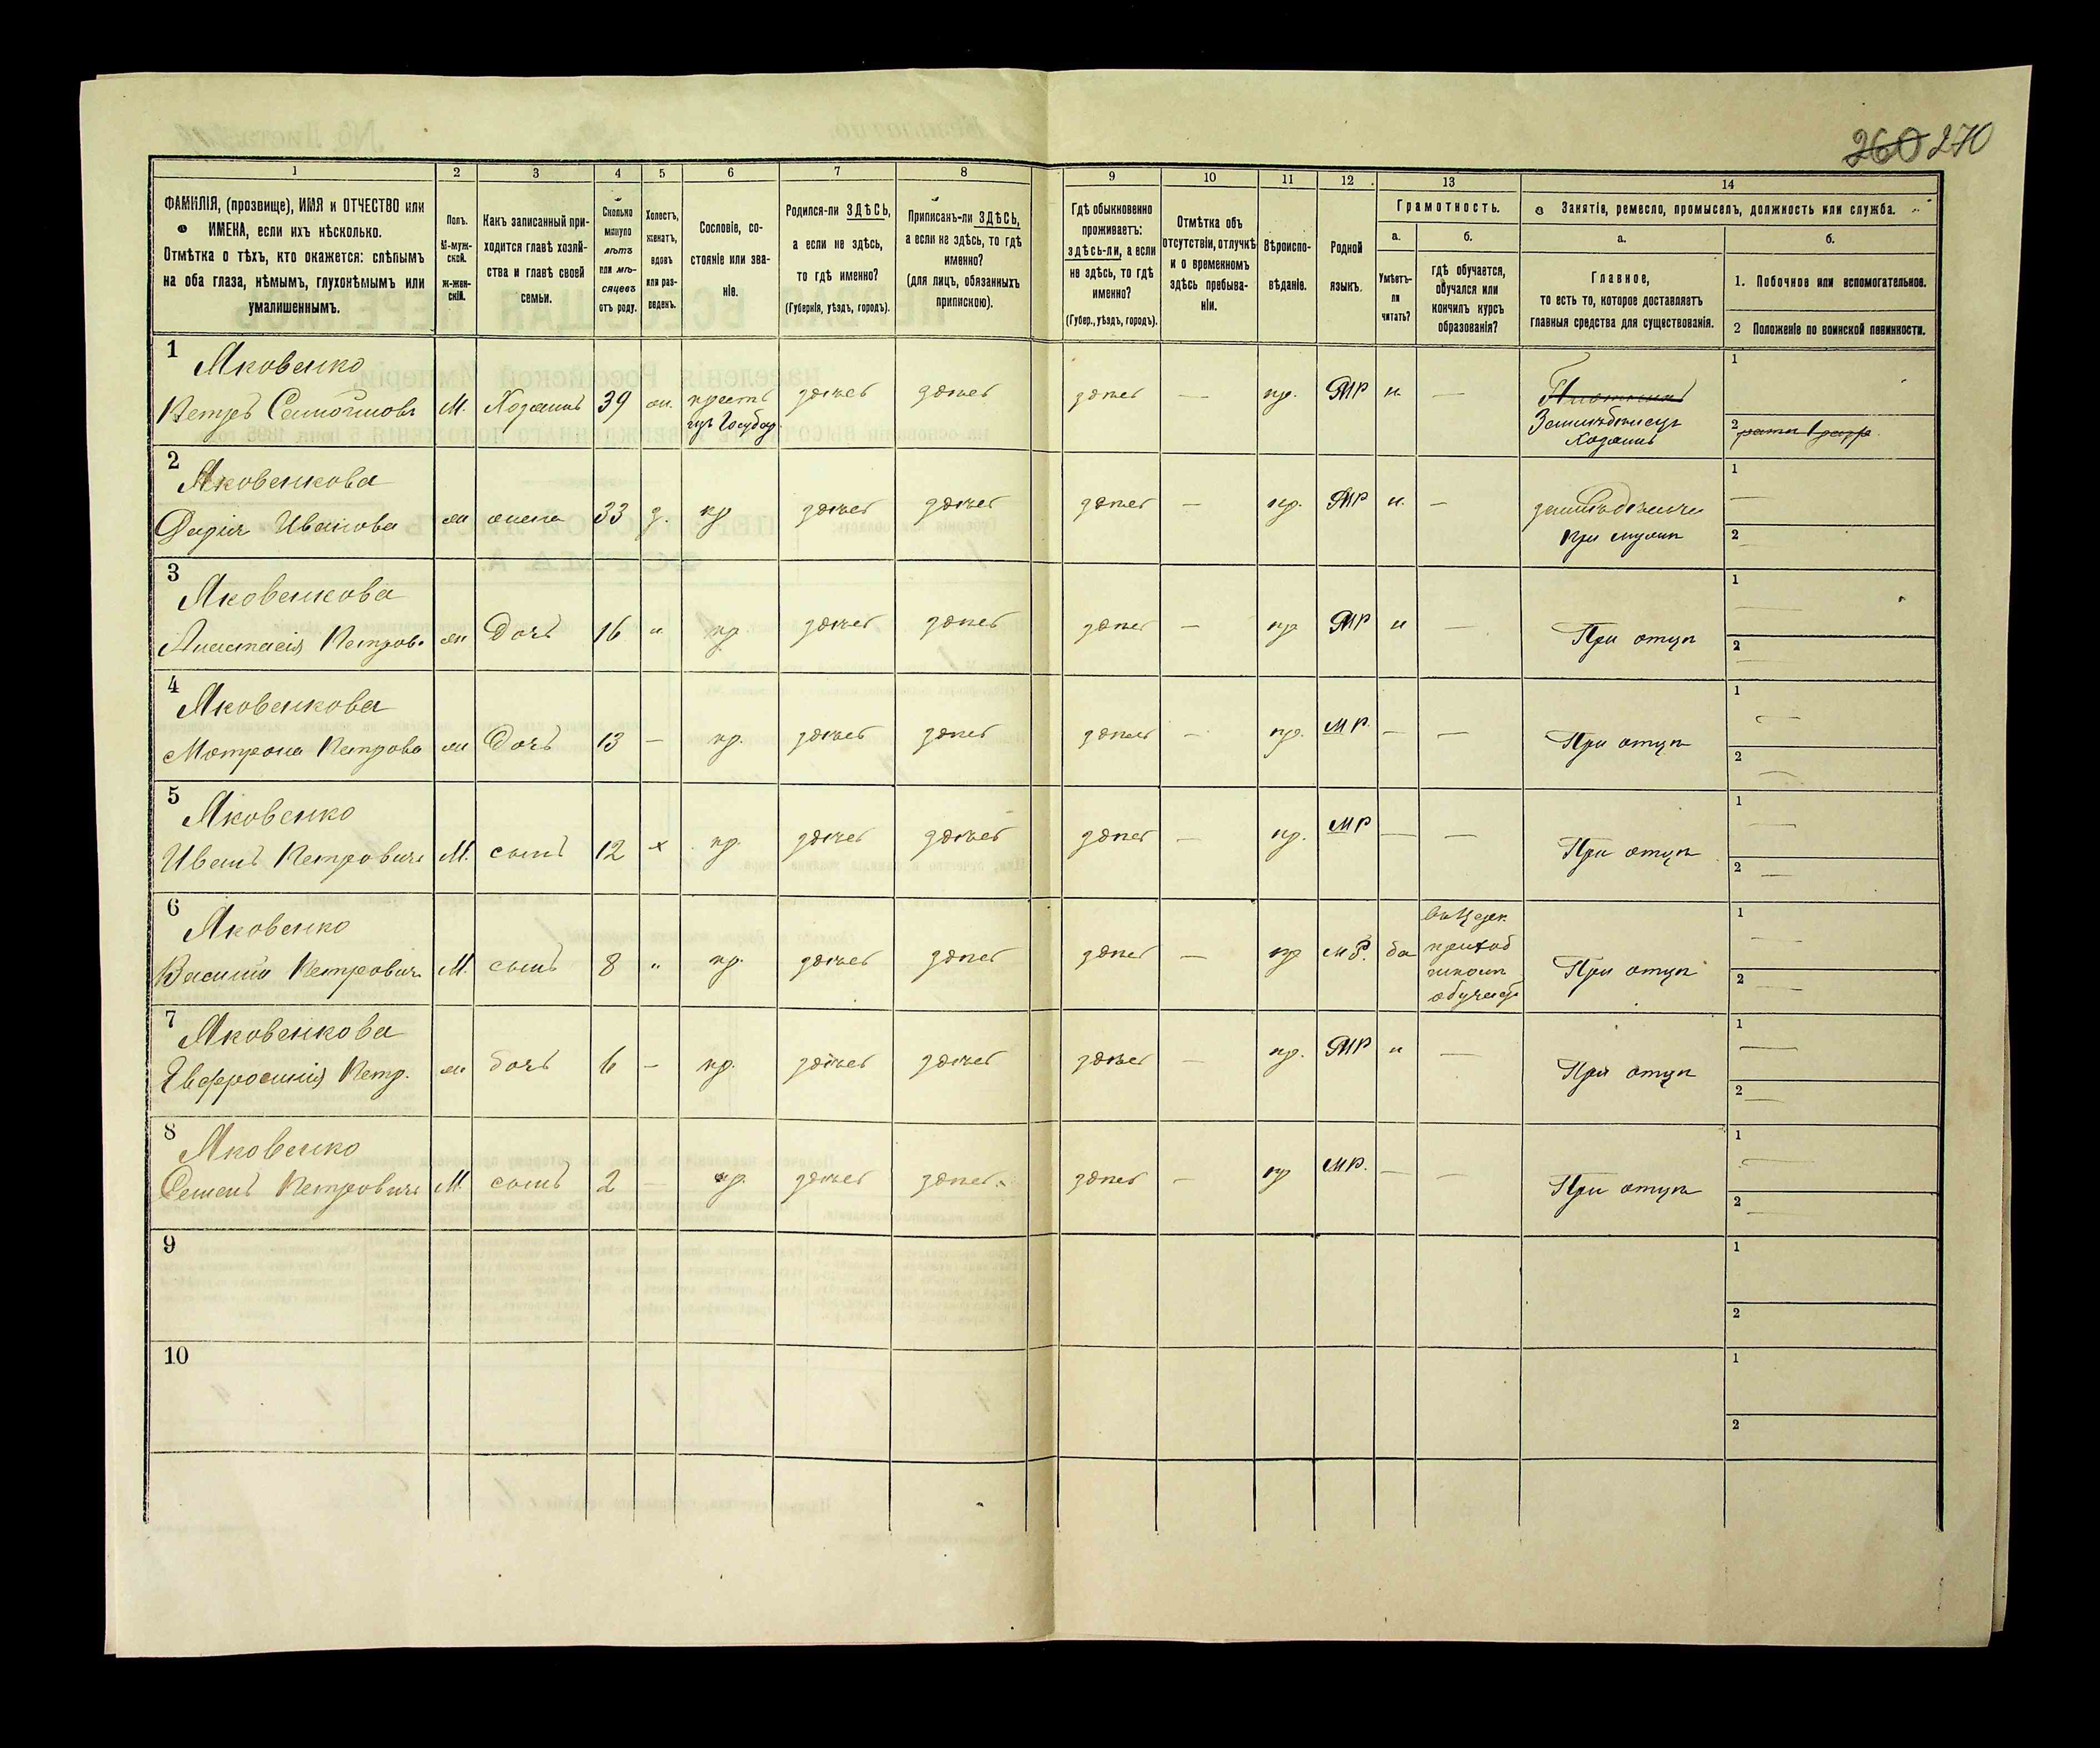 260 270
1 2 3 4 5 6 7 8 9 10 11 12 13 14
ФАМИЛІЯ, (прозвище), ИМЯ и ОТЧЕСТВО или
ИМЕНА, если ихъ нѣсколько.
Отмѣтка о тѣхъ, кто окажется: слѣпымъ
на оба глаза, нѣмымъ, глухонѣмымъ или
умалишеннымъ.
Полъ.
М-муж-
ской.
Ж-жен-
скій.
Какъ записанный при-
ходится главѣ хозяй-
ства и главѣ своей
семьи.
Сколько
минуло
лѣтъ
или мѣ-
сяцевъ
отъ роду.
Холостъ,
женатъ,
вдовъ
или раз-
веденъ.
Сословіе, со-
стояніе или зва-
ніе.
Родился-ли ЗДѢСЬ,
а если не здѣсь,
то гдѣ именно?
(Губернія, уѣздъ, городъ).
Приписанъ-ли ЗДѢСЬ,
а если не здѣсь, то гдѣ
именно?
(для лицъ, обязанныхъ
припискою).
Гдѣ обыкновенно
проживаетъ:
здѣсь-ли, а если
не здѣсь, то гдѣ
именно?
(Губер., уѣздъ, городъ).
Отмѣтка объ
отсутствіи, отлучкѣ
и о временномъ
здѣсь пребыва-
ніи.
Вѣроиспо-
вѣданіе.
Родной
языкъ.
Грамотность.
а.
Умѣетъ-
ли
читать?
б.
гдѣ обучается,
обучался или
кончилъ курсъ
образованія?
Занятіе, ремесло, промыселъ, должность или служба.
а.
Главное,
то есть то, которое доставляетъ
главныя средства для существованія.
б.
1. Побочное или вспомогательное.
2 Положеніе по воинской повинности.
1 Яковенко
Петръ Самойловъ М. Хозяинъ 39 ж. крестъ здѣсь здѣсь здѣсь — пр. МР н —
изъ Госуд
Земледѣлецъ
Хозяинъ
1
2
2 Яковенкова
Дарія Иванова ж жена 33 з. кр здѣсь здѣсь здѣсь — пр. МР н. —
земледѣліе
при мужѣ
1 —
2
3 Яковенкова
Анастасія Петров. ж Дочь 16 " кр здѣсь здѣсь здѣсь — пр МР н — При отцѣ
1 —
2 —
4 Яковенкова
Мотрона Петрова ж Дочь 13 — кр. здѣсь здѣсь здѣсь — пр. МР — — При отцѣ
1 —
2 —
5 Яковенко
Иванъ Петровичъ М. сынъ 12 х кр. здѣсь здѣсь здѣсь — пр. МР — — При отцѣ
1 —
2 —
6 Яковенко
Василій Петровичъ М. сынъ 8 " кр. здѣсь здѣсь здѣсь — пр МР. да
въ Церк.
приход
школѣ
обучает
При отцѣ
1 —
2 —
7 Яковенкова
Евфросинія Петр. ж дочь 6 — кр. здѣсь здѣсь здѣсь — пр. МР н — При отцѣ
1 —
2 —
8 Яковенко
Семенъ Петровичъ М. сынъ 2 — кр. здѣсь здѣсь здѣсь — пр МР. — — При отцѣ
1 —
2 —
9
1
2
10
1
2